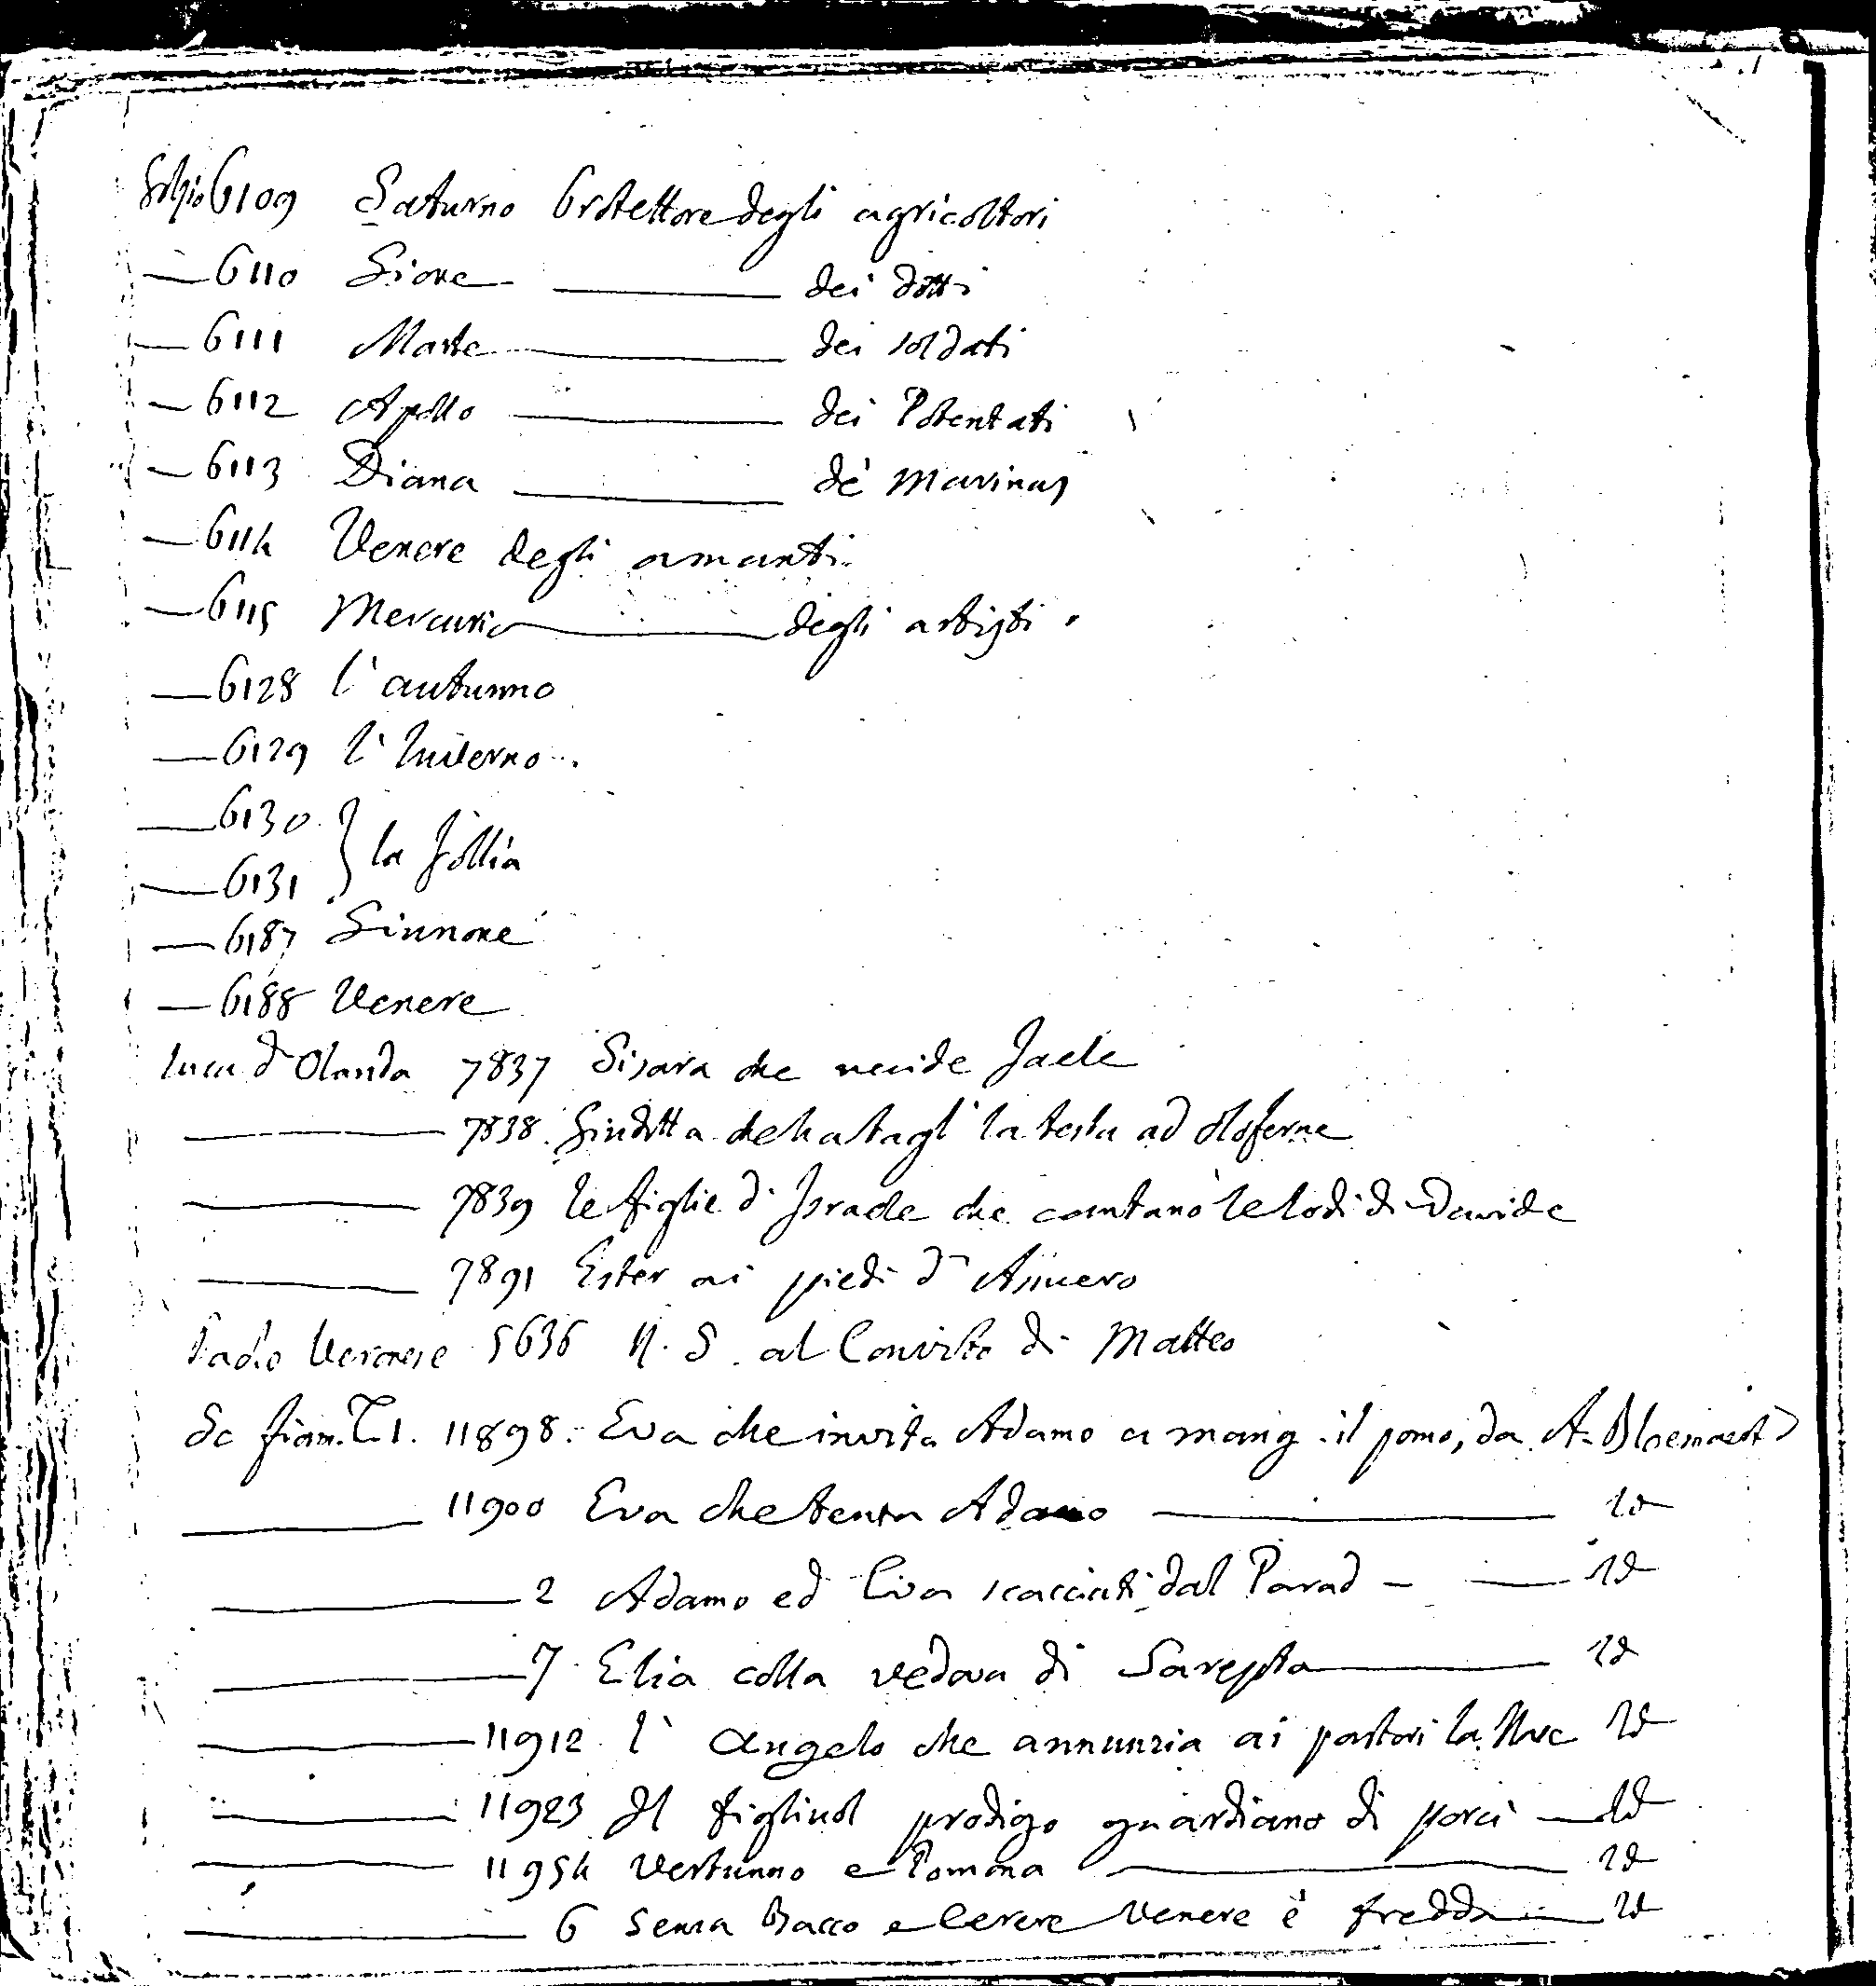 6109 Saturno Protettore degli agricoltori
— 6110 Giove ——— dei dotti
— 6111 Marte ——— dei soldati
— 6112 Apollo ——— dei Potentati
— 6113 Diana ——— de' Marinaj
— 6114 Venere degli amanti.
— 6115 Mercurio ——— degli artisti.
— 6128 l'autunno
— 6129 l'Inverno.
— 6130 } la follia
— 6131
— 6187 Giunone
— 6188 Venere
Luca d'Olanda 7837 Sisara che uccide Jaele
——— 7838. Giuditta che ha tagl' la testa ad Oloferne
——— 7839 le figlie d'Israele che cantano le lodi di Davide
——— 7891 Ester ai piedi d'Assuero
Paolo Veronese 5636 N. S. al Convito di Matteo
Sc fiam. T. 1. 11898. Eva che invita Adamo a mang. il pomo, da A. Bloemaert
——— 11900 Eva che tenta Adamo ——— Id
——— 2 Adamo ed Eva scacciati dal Parad — — Id
——— 7 Elia colla vedova di Sarepta ——— Id
——— 11912 l'Angelo che annunzia ai pastori la Id
——— 11923 Il figliuol prodigo guardiano di porci — Id
——— 11954 Vertunno e Pomona ——— Id
——— 6 Senza Bacco e Cerere Venere è fredda — Id